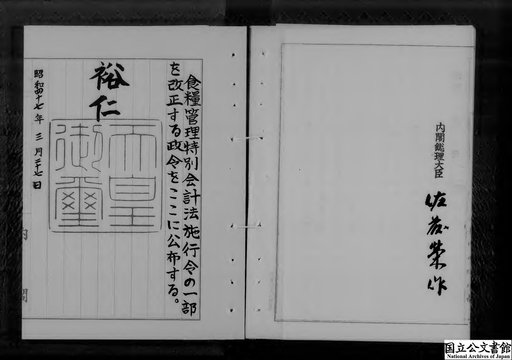 食糧管理特別会計法施行令の一部
を改正する政令をここに公布する。
裕仁
天皇御璽
昭和四十七年三月二十七日
内閣
内閣総理大臣
佐藤榮作
国立公文書館
National Archives of Japan